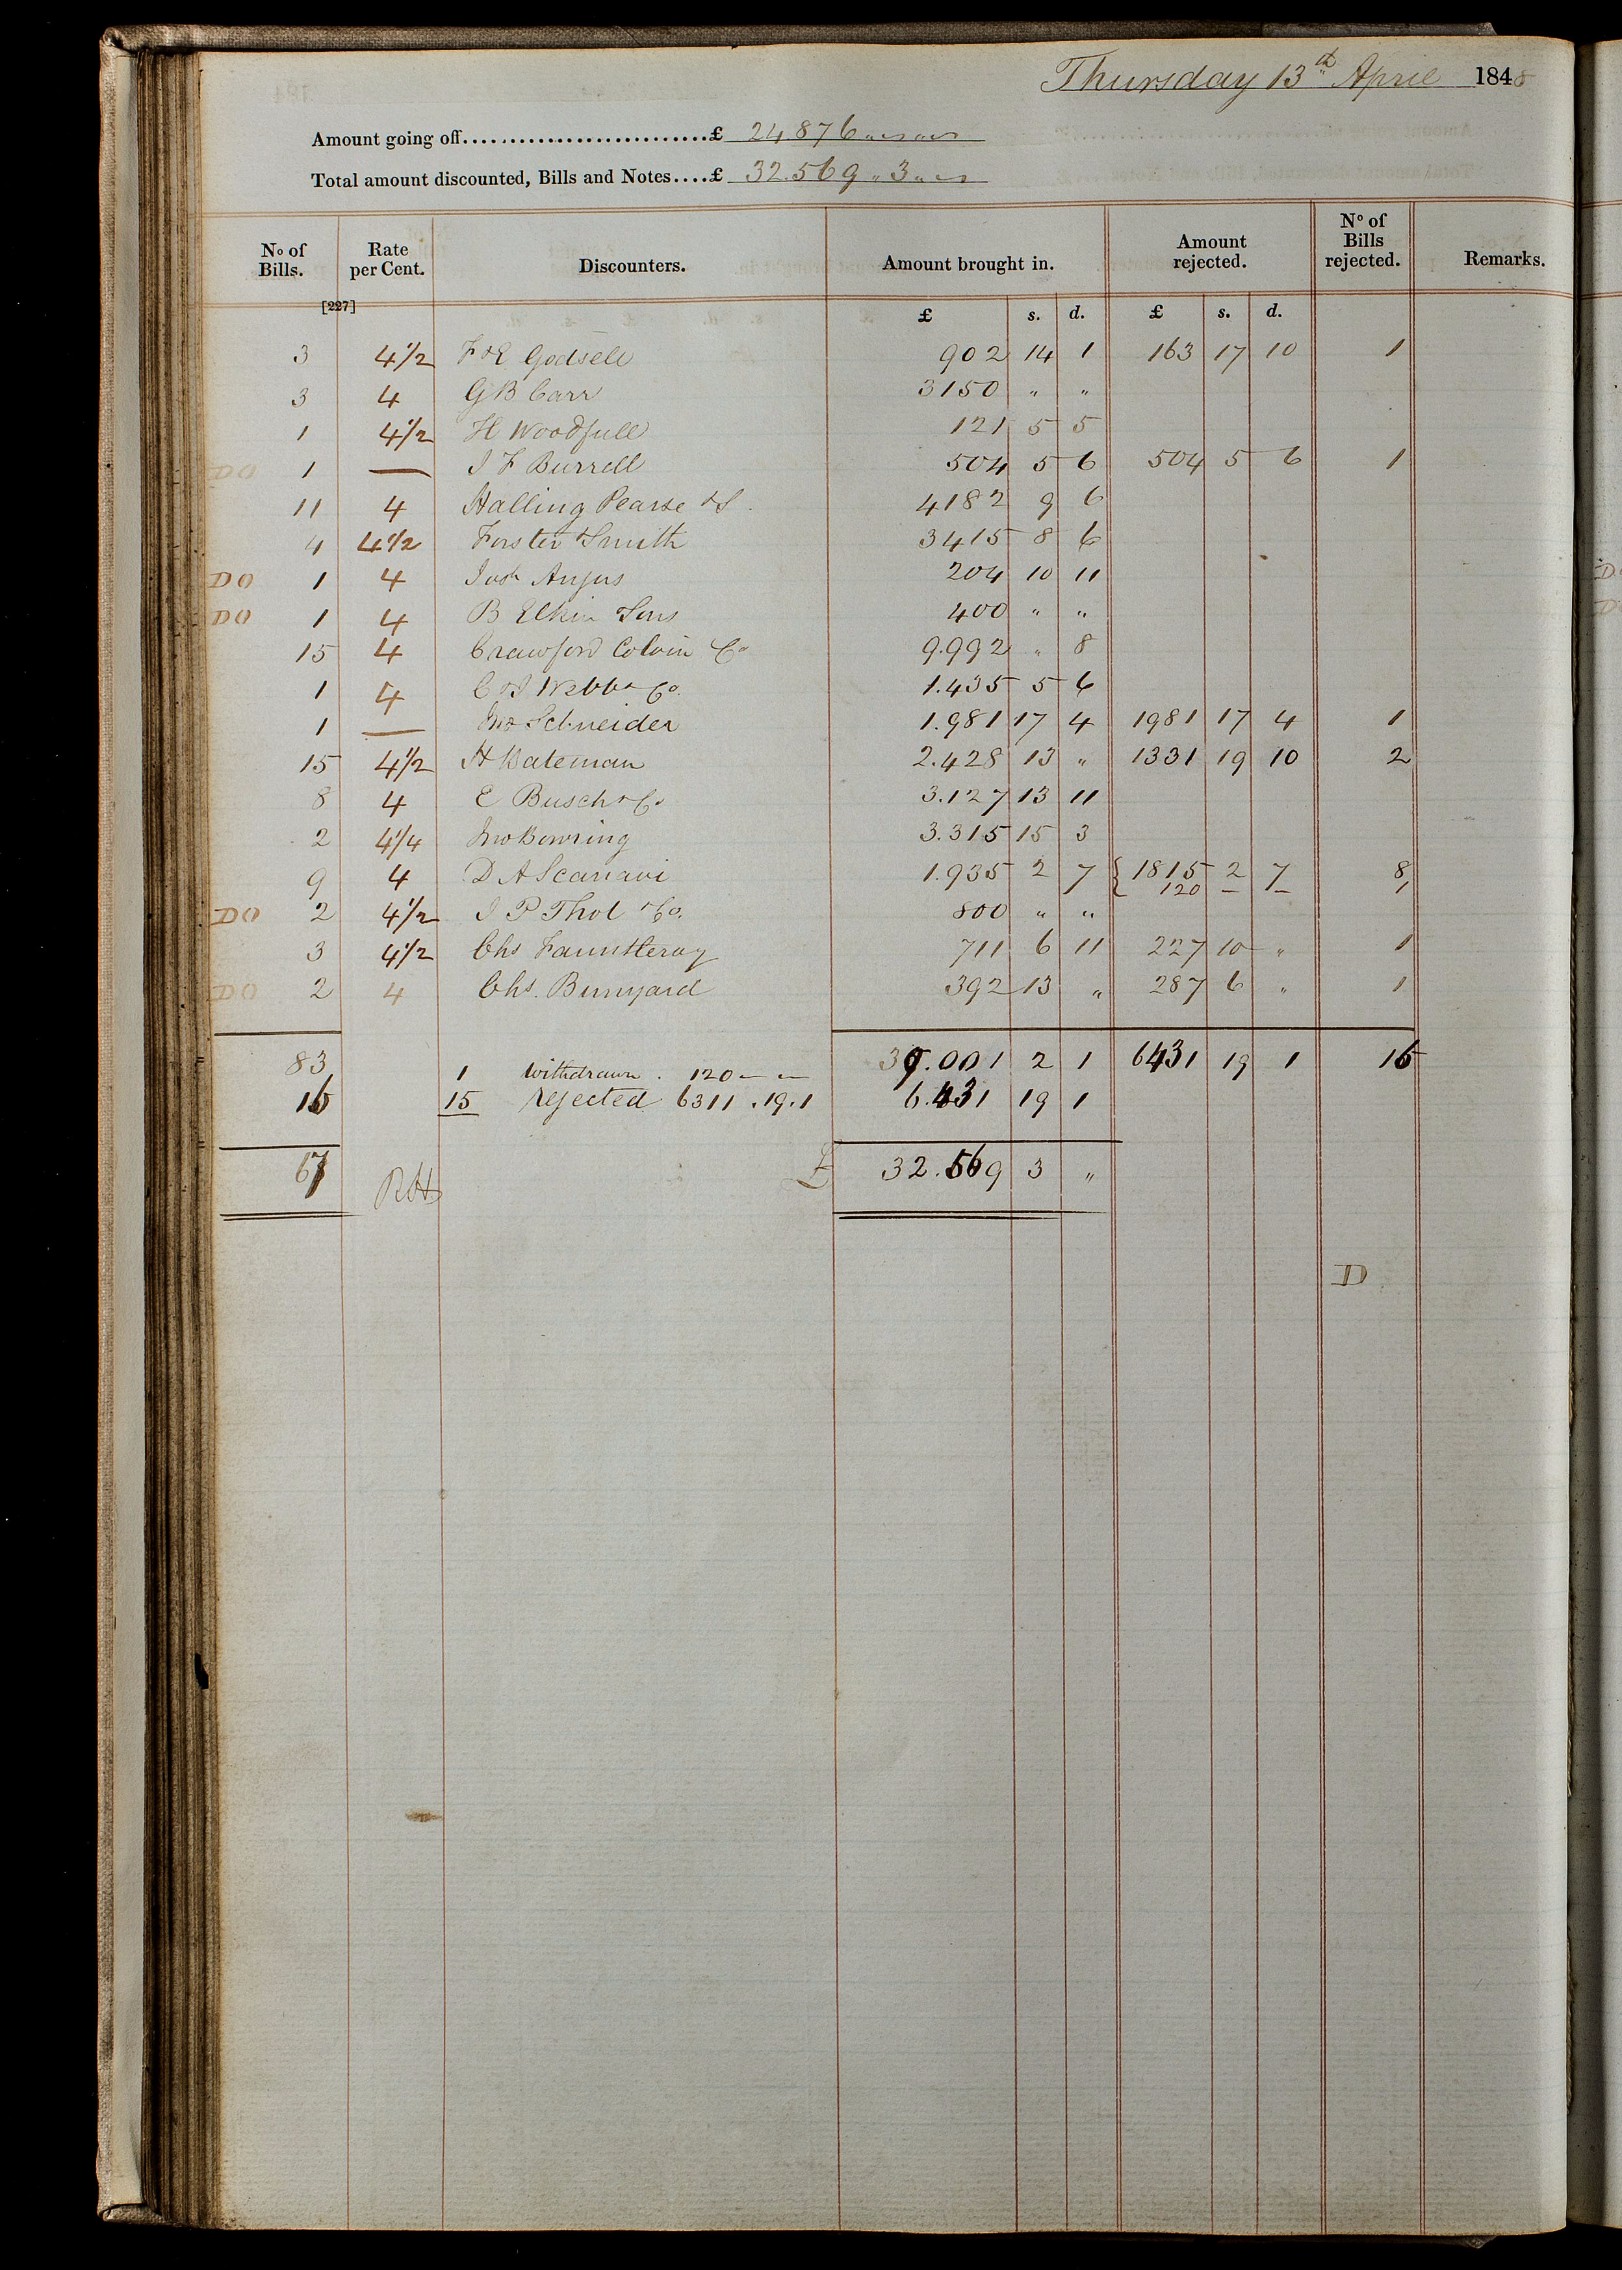 Thursday 13th April 1848
Amount going off..........................£ 24.876 " "
Total amount discounted, Bills and Notes....£ 32.569 " 3 " "
No of Bills. Rate per Cent. Discounters. Amount brought in. Amount rejected. No of Bills rejected. Remarks.
[227]
£ s. d. £ s. d.
3 4 1/2 F & E Godsell 902 14 1 163 17 10 1
3 4 G B Carr 3150 " "
1 4 1/2 H Woodfull 121 5 5
DO 1 — J F Burrell 504 5 6 504 5 6 1
11 4 Halling Pearse & S 4182 9 6
4 4 1/2 Forster & Smith 3415 8 6
DO 1 4 Josh Angus 204 10 11
DO 1 4 B Elkin & Sons 400 " "
15 4 Crawford Colvin & Co 9.992 " 8
1 4 C & J Webb & Co. 1.435 5 6
1 — Jno Schneider 1.981 17 4 1981 17 4 1
15 4 1/2 H Bateman 2.428 13 " 1331 19 10 2
8 4 E Busch & Co 3.127 13 11
2 4 1/4 Jno Bowring 3.315 15 3
9 4 D A Scanavi 1.935 2 7 { 1815 2 7 8
120 – – 1
DO 2 4 1/2 J P Thol & Co. 800 " "
3 4 1/2 Chs Fauntleroy 711 6 11 227 10 " 1
DO 2 4 Chs. Bunyard 392 13 " 287 6 " 1
83 39.001 2 1 6431 19 1 16
1 withdrawn . 120 — —
16 15 rejected 6311 . 19 . 1 6.431 19 1
67 RH £ 32.569 3 "
D